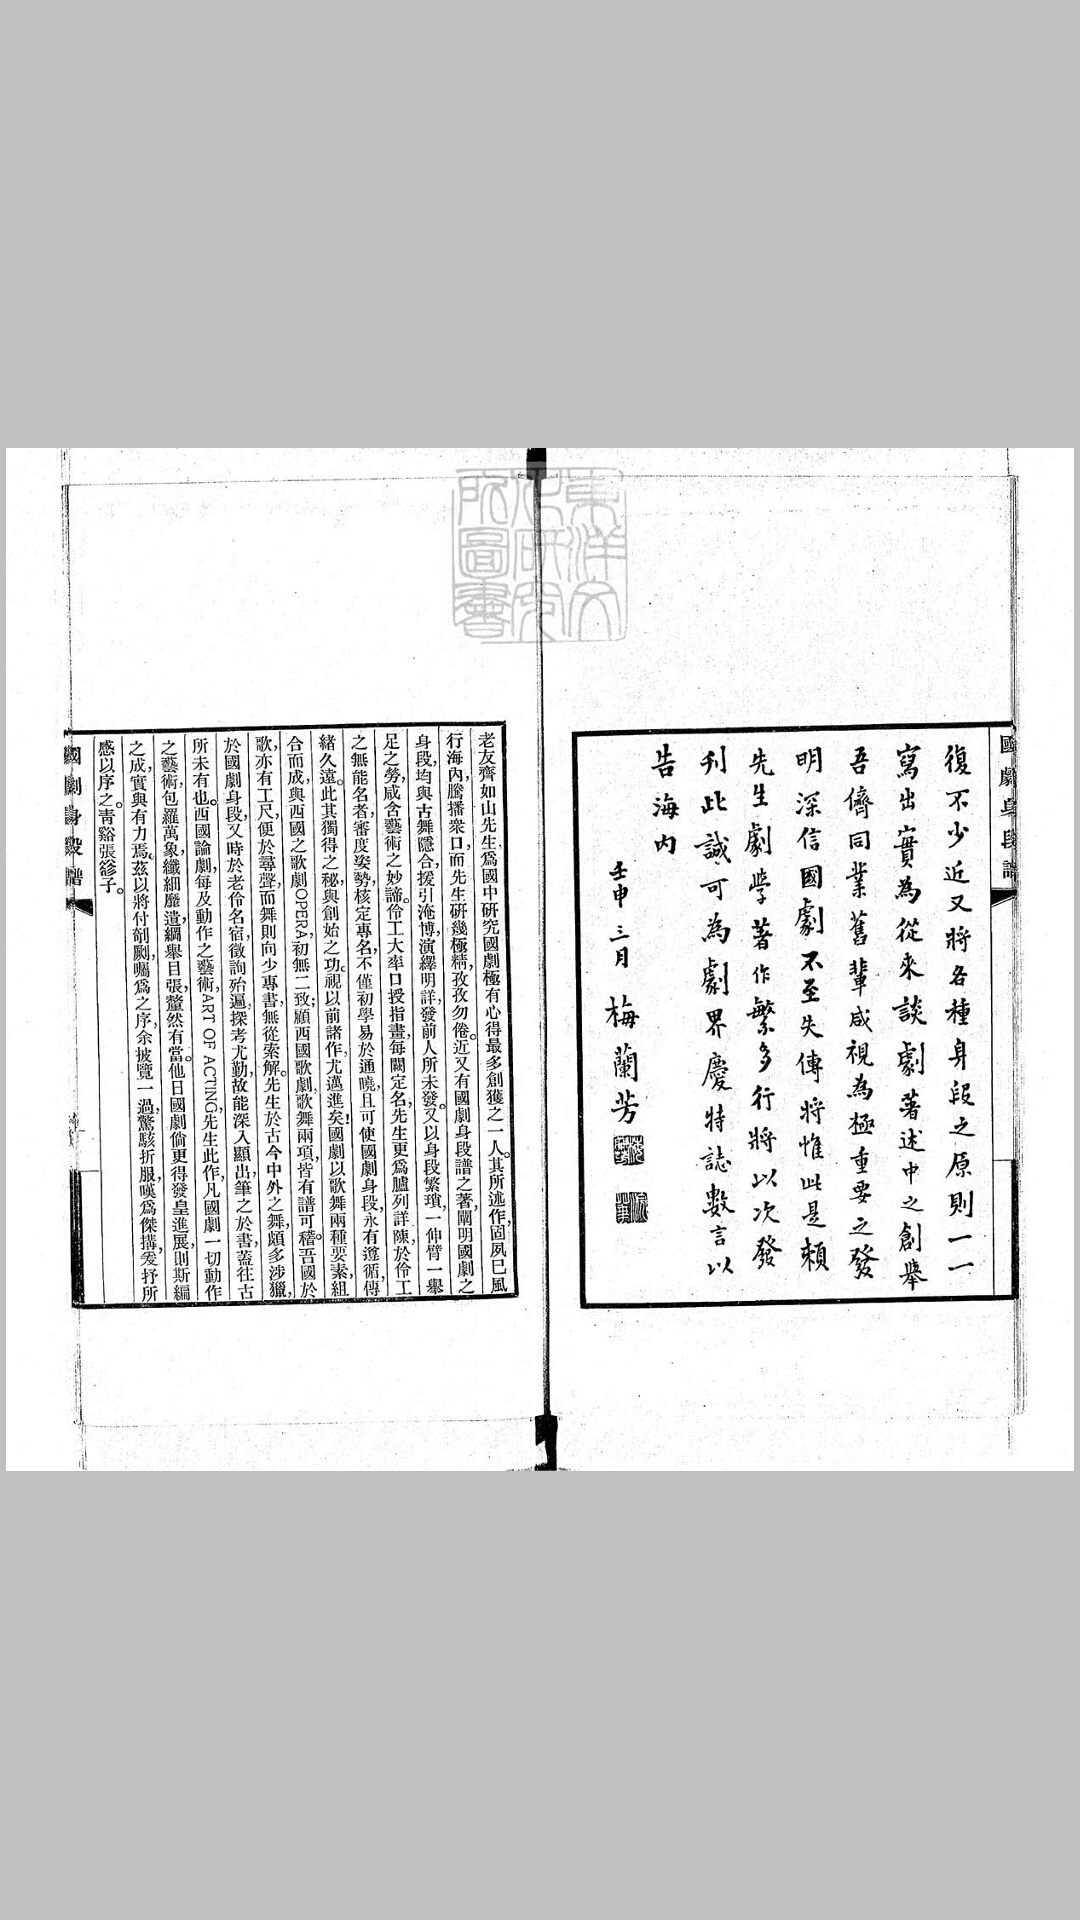 東洋文
化研究
所圖書
國劇身段譜
復不少近又將各種身段之原則一一
寫出實為從來談劇著述中之創舉
吾儕同業舊輩咸視為極重要之發
明深信國劇不至失傳將惟此是賴
先生劇學著作繁多行將以次發
刊此誠可為劇界慶特誌數言以
告海內
壬申三月 梅蘭芳
老友齊如山先生，爲國中硏究國劇極有心得最多創獲之一人。其所述作，固夙已風
行海內，騰播衆口，而先生硏幾極精，孜孜勿倦。近又有國劇身段譜之著，闡明國劇之
身段，均與古舞隱合，援引淹博，演繹明詳，發前人所未發。又以身段繁瑣，一伸臂一舉
足之勞，咸含藝術之妙諦。伶工大率口授指畫，每闕定名，先生更爲臚列詳陳，於伶工
之無能名者，審度姿勢，核定專名，不僅初學易於通曉，且可使國劇身段，永有遵循，傳
緒久遠。此其獨得之秘，與創始之功，視以前諸作，尤邁進矣！國劇以歌舞兩種要素，組
合而成，與西國之歌劇OPERA，初無二致；顧西國歌劇，歌舞兩項，皆有譜可稽。吾國於
歌，亦有工尺，便於尋聲，而舞則向少專書，無從索解。先生於古今中外之舞，頗多涉獵，
於國劇身段，又時於老伶名宿，徵詢殆遍，探考尤勤，故能深入顯出，筆之於書，蓋往古
所未有也。西國論劇，每及動作之藝術，ART OF ACTING，先生此作，凡國劇一切動作
之藝術，包羅萬象，纖細靡遺，綱舉目張，釐然有當。他日國劇倘更得發皇進展，則斯編
之成，實與有力焉。茲以將付剞劂，囑爲之序，余披覽一過，驚駭折服，嘆爲傑搆，爰抒所
感以序之。靑谿張蓚子。
國劇身段譜